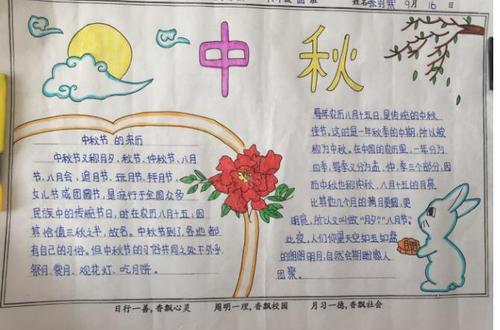 班
姓名
9月16日
中秋
中秋节的来历
中秋节又称月夕、秋节、仲秋节、八月
节、八月会、追月节、玩月节、拜月节、
女儿节或团圆节,是流行于全国众多
民族中的传统节日,时在农历八月十五,因
其恰值三秋之半,故名。中秋节到了,各地都
有自己的习俗。但中秋节的习俗共同之处不外乎
祭月、赏月、观花灯、吃月饼。
每年农历八月十五日,是传统的中秋
佳节。这时是一年秋季的中期,所以被
称为中秋。在中国的农历里,一年分为
四季,每季又分为孟、仲、季三个部分,因
而中秋也称仲秋。八月十五的月亮
比其他几个月的满月更圆,更
明亮,所以又叫做"月夕""八月节"。
此夜,人们仰望天空如玉如盘
的朗朗明月,自然会期盼家人
团聚。
日行一善,香飘心灵 周明一理,香飘校园 月习一德,香飘社会